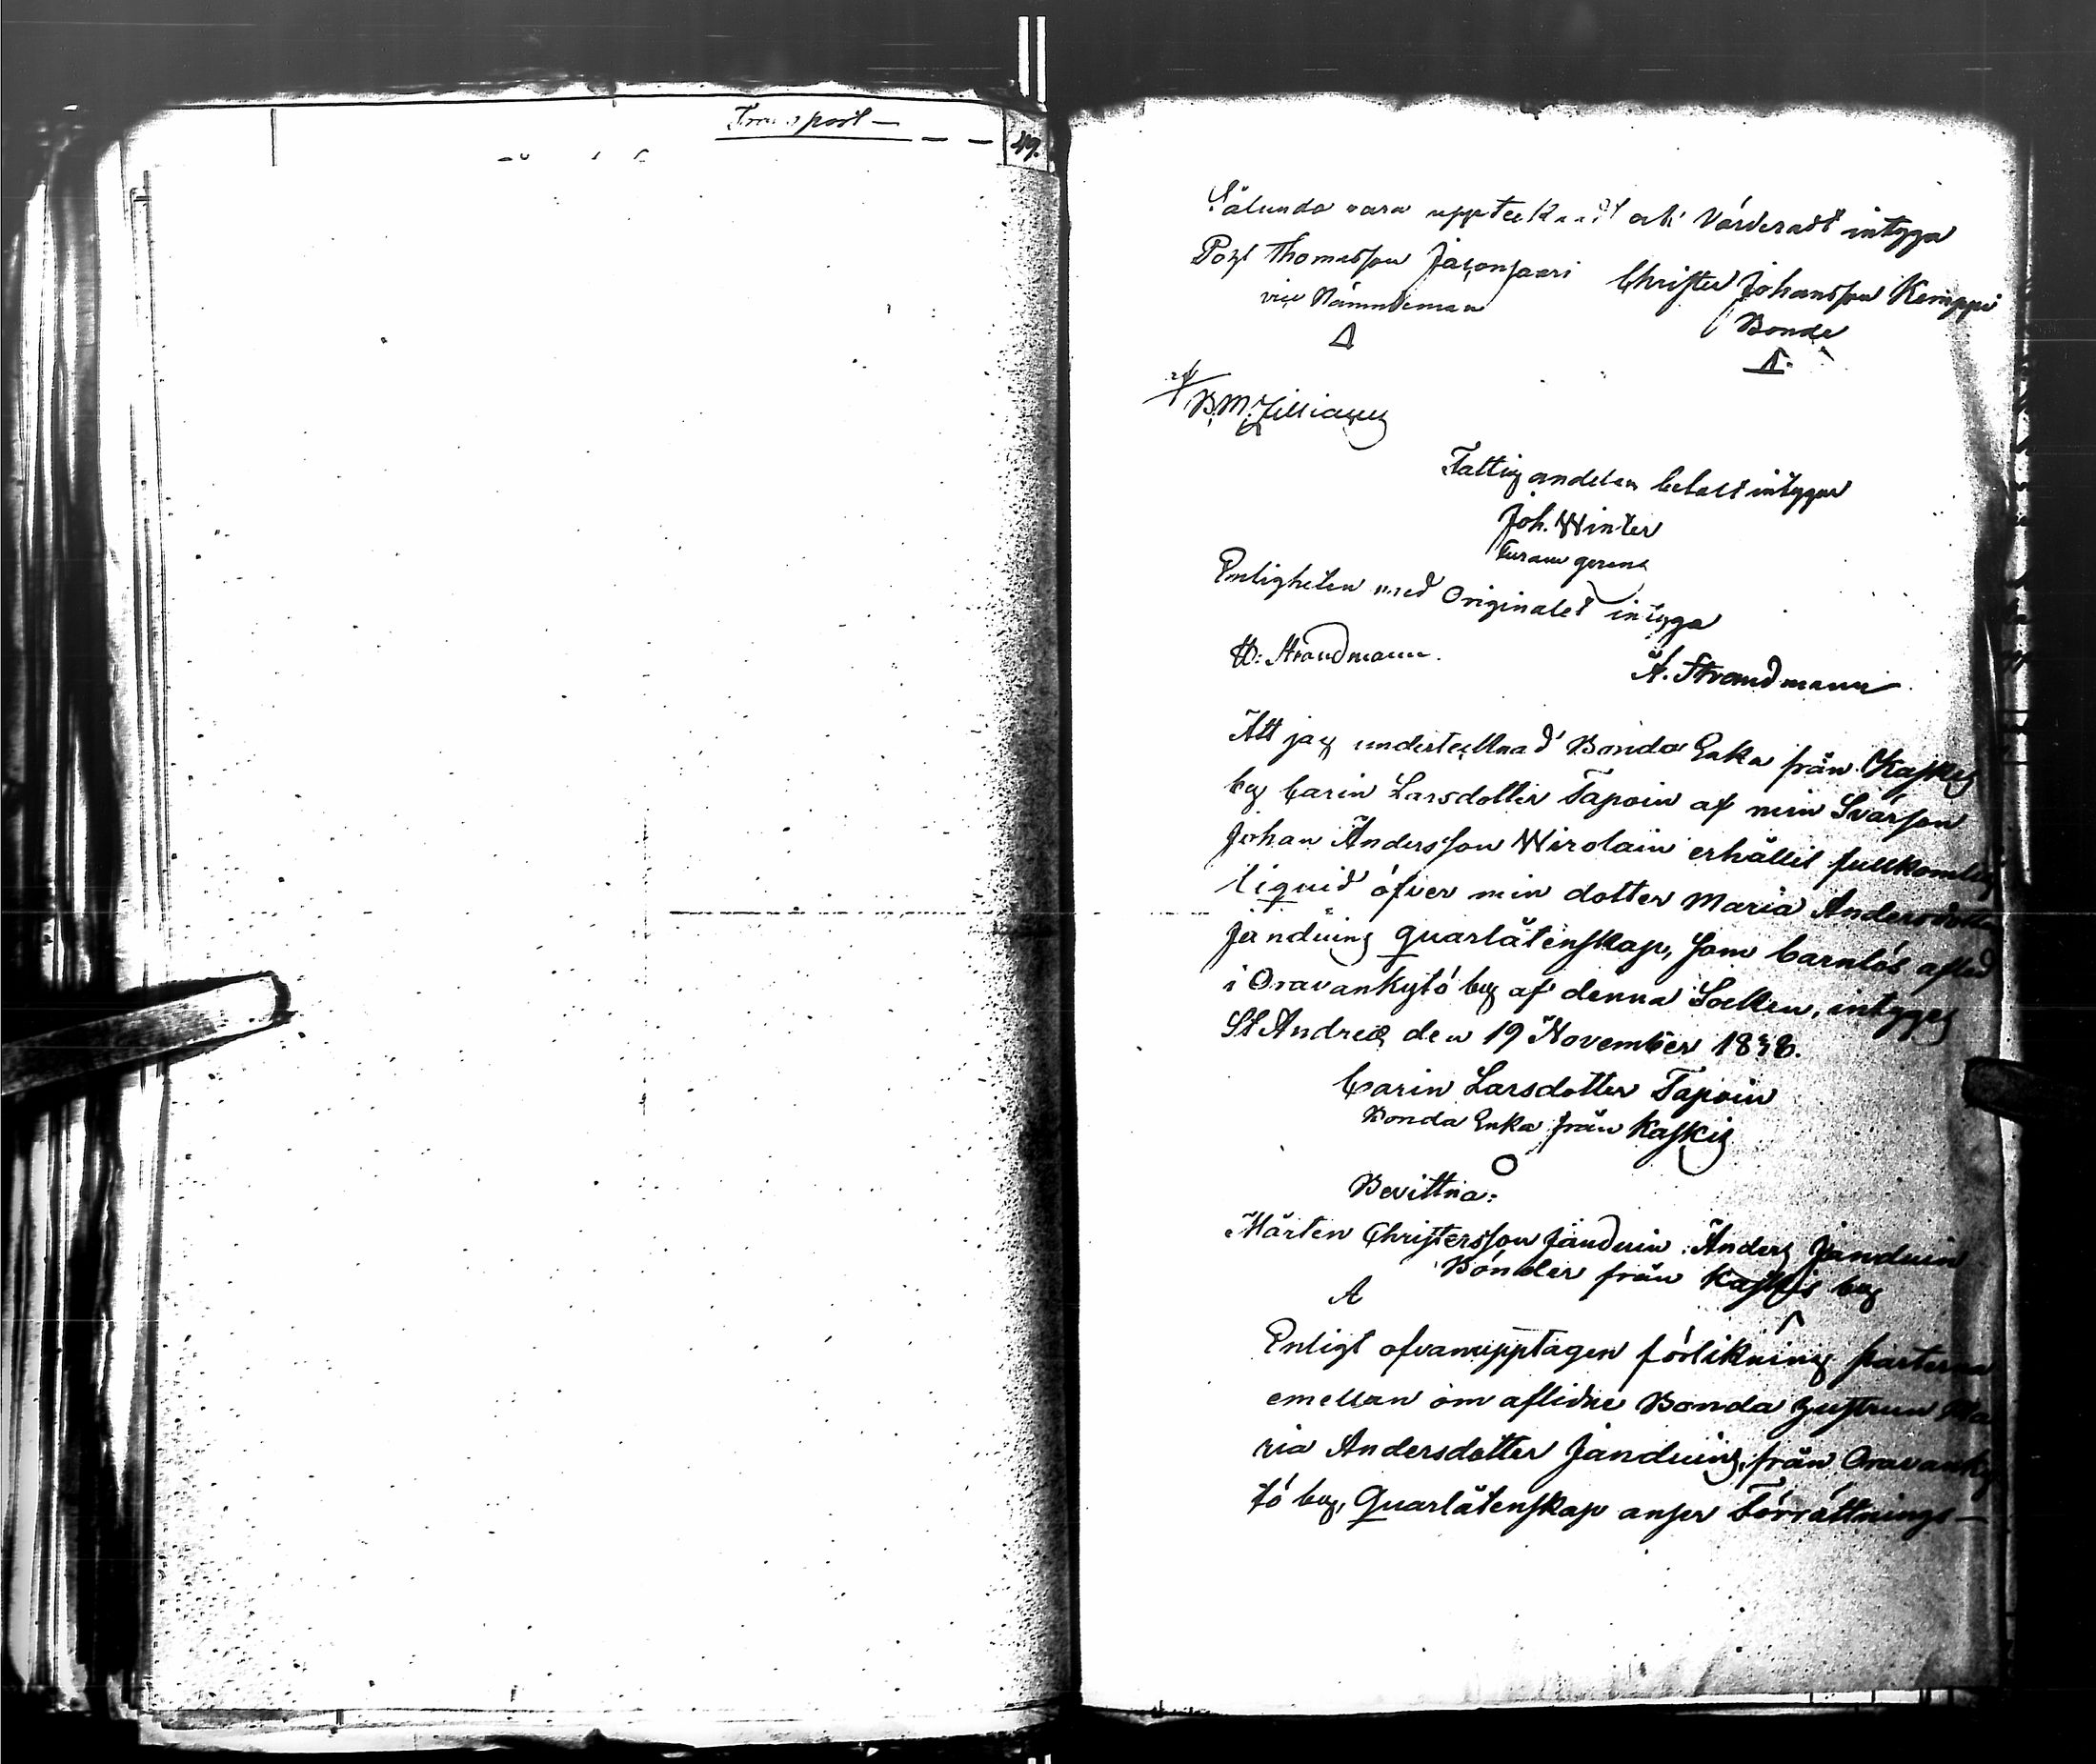 Transport —
49.
Sålunda vara uppteknadt och Värderadt intyga
Thomasson Christer Johansson Kemppi
vice Nämndeman Bonde
Fattig andelen betalt intygar
Joh. Winter
curam gerens
Enligheten med Originalet intyga
A. Strandmann
Att jag undertecknad Bonda Enka från Kaskis
by Carin Larsdotter Tapoin af min Svärson
Johan Andersson Wirolain erhållit fullkomlig
liquid öfver min dotter Maria Andersdotter
Janduins quarlåtenskap, som barnlös afled
i Oravankytö by af denna Socken, intyges
St Andreæ den 19 November 1838.
Carin Larsdotter Tapoin
Bonda Enka från Kaskis
O
Bevittna:
Mårten Christersson Janduin Anders Janduin
Bönder från Kaskis by
Enligt ofvanupptagen förlikning parterna
emellan om aflidne Bonda hustrun Ma
ria Andersdotter Janduins, från Oravanky
tö by, Quarlåtenskap anser Förrättnings-